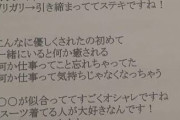 リガリ→引き締まっててステキですね！
こんなに優しくされたの初めて
一緒にいると何か癒される
何か仕事ってこと忘れちゃってた
何か仕事って気持ちじゃなくなっちゃう
○○が似合っててすごくオシャレですね
スーツ着てる人が大好きなんです！